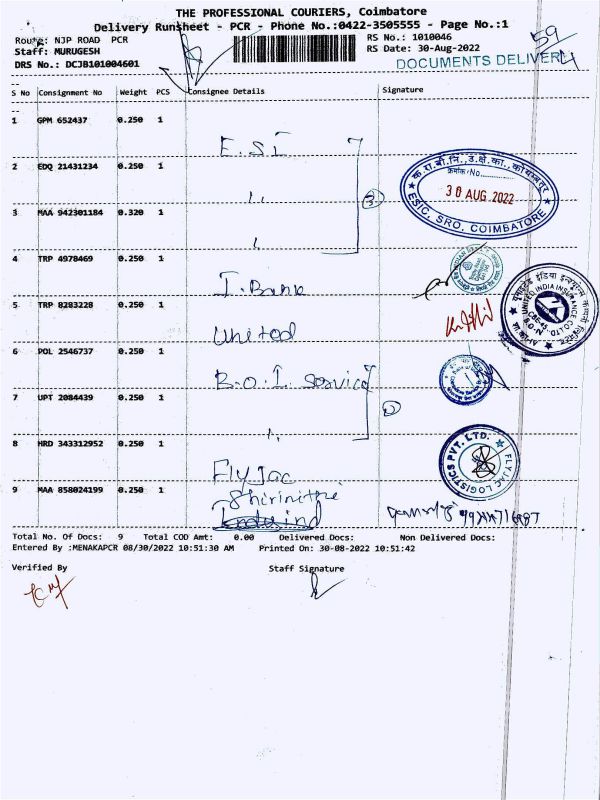 THE PROFESSIONAL COURIERS, Coimbatore
Delivery Runsheet - PCR - Phone No.:0422-3505555 - Page No.:1
Route: NJP ROAD PCR
RS No.: 1010046
59
Staff: MURUGESH
RS Date: 30-Aug-2022
DRS No.: DCJB101004601
DOCUMENTS DELIVERY
S No Consignment No Weight PCS Consignee Details Signature
1 GPM 652437 0.250 1
E.S.I
2 EDQ 21431234 0.250 1
,,
3 MAA 942301184 0.320 1
③
क.रा.बी.नि.,उ.क्षे.का., कोयम्बत्तूर
क्रमांक/No.
30 AUG 2022
ESIC, SRO, COIMBATORE
4 TRP 4978469 0.250 1
I. Bank
5 TRP 8283228 0.250 1
United
UNITED INDIA INSURANCE CO. LTD.
6 POL 2546737 0.250 1
B.O.I Service
7 UPT 2084439 0.250 1
,,
8 HRD 343312952 0.250 1
Fly Jac
FLYJAC LOGISTICS PVT. LTD.
9 MAA 858024199 0.250 1
Total No. Of Docs: 9 Total COD Amt: 0.00 Delivered Docs: Non Delivered Docs:
Entered By :MENAKAPCR 08/30/2022 10:51:30 AM Printed On: 30-08-2022 10:51:42
Verified By Staff Signature